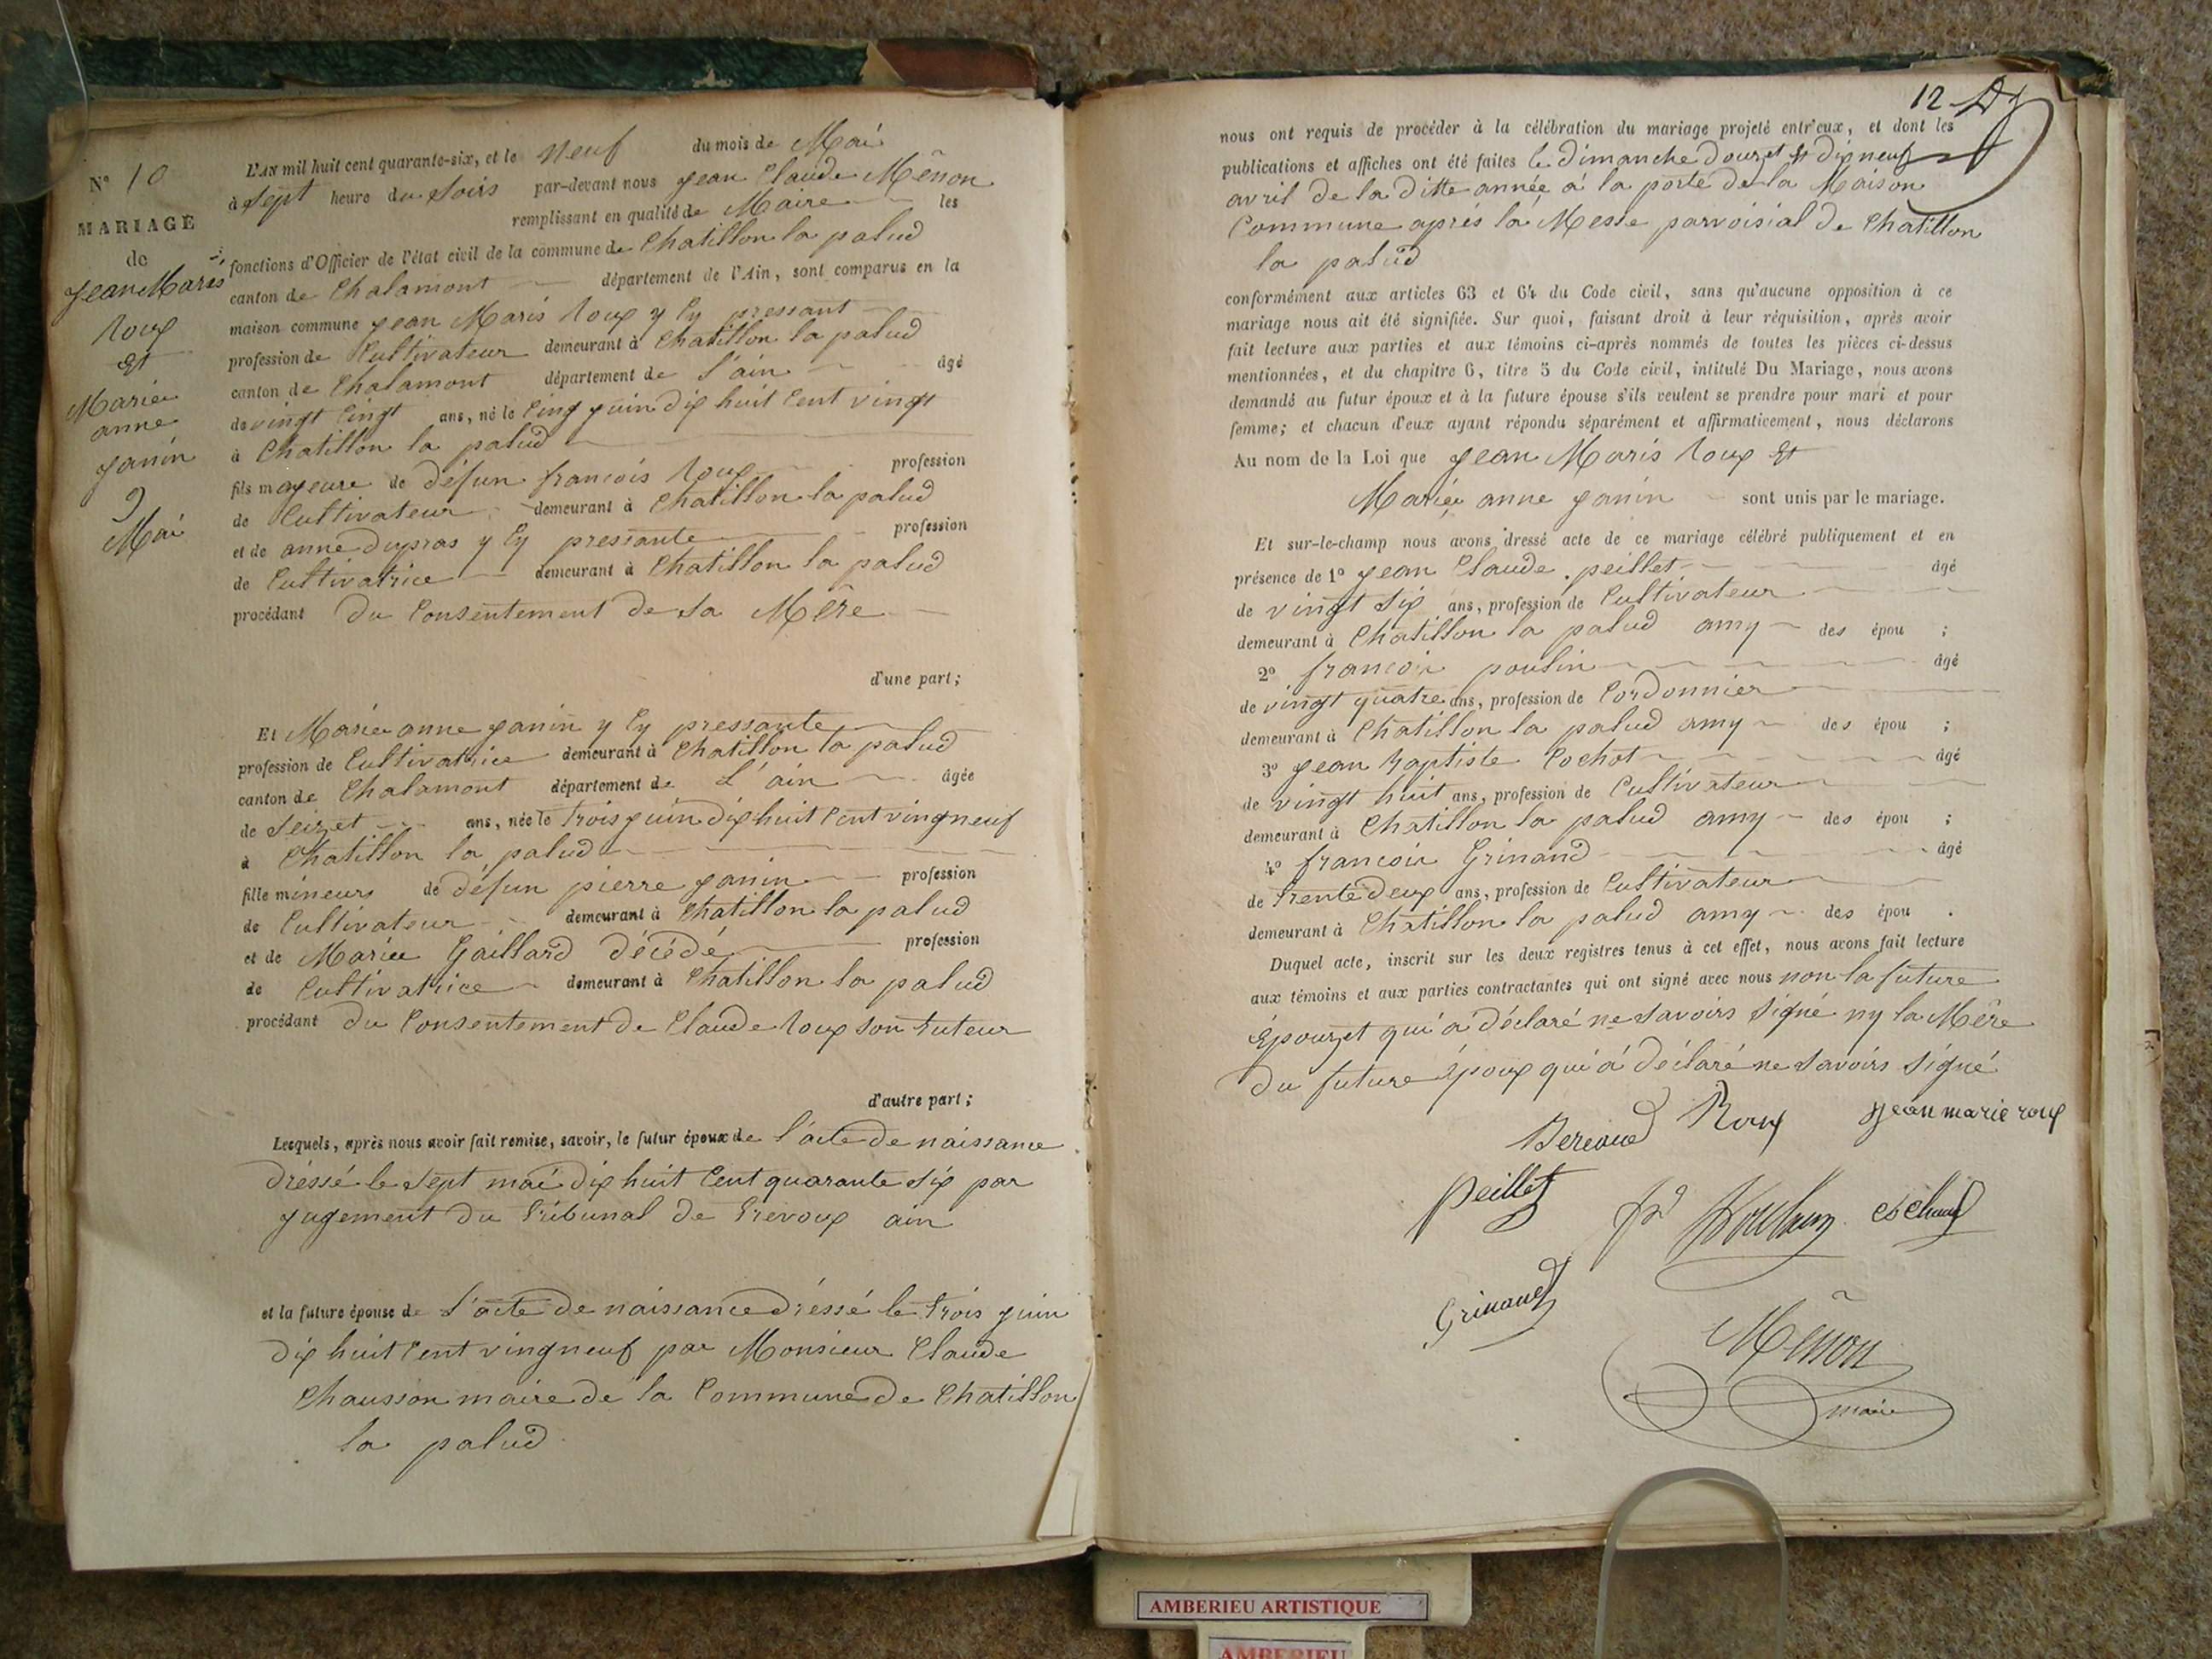 N° 10
MARIAGE
de
Jean Maris
Roux
et
Mariée
anne
Janin
9
Mai
L'AN mil huit cent quarante-six, et le neuf du mois de Mai
à sept heure du soirs par-devant nous Jean Claude Mênon
remplissant en qualité de Maire les
fonctions d'Officier de l'état civil de la commune de Chatillon la palud
canton de Chalamont département de l'Ain, sont comparus en la
maison commune Jean Maris Roux y Cy pressant
profession de Cultivateur demeurant à Chatillon la palud
canton de Chalamont département de l'ain âgé
de vingt Cinqt ans, né le Cinq juin dix huit Cent vingt
à Chatillon la palud
fils mayeure de défun francois Roux profession
de Cultivateur demeurant à Chatillon la palud
et de anne dupras y Cy pressante profession
de Cultivatrice demeurant à Chatillon la palud
procédant du Consentement de sa Mêre
d'une part;
Et Mariée anne Janin y Cy pressante
profession de Cultivatrice demeurant à Chatillon la palud
canton de Chalamont département de L'ain âgée
de seizet ans, née le trois juin dix huit Cent vingneuf
à Chatillon la palud
fille mineurs de défun pierre Janin profession
de Cultivateur demeurant à Chatillon la palud
et de Mariée Gaillard décédé profession
de Cultivatrice demeurant à Chatillon la palud
procédant du Consentement de Claude Roux son tuteur
d'autre part;
Lesquels, après nous avoir fait remise, savoir, le futur époux de l'acte de naissance
dréssé le sept mai dix huit Cent quarante six par
jugement du tribunal de trevoux ain
et la future épouse de l'acte de naissance dréssé le trois juin
dix huit Cent vingneuf par Monsieur Claude
Chausson maire de la Commune de Chatillon
la palud
12
nous ont requis de procéder à la célébration du mariage projeté entr'eux, et dont les
publications et affiches ont été faites le dimanche douzet et dixneuf
avril de la ditte année à la porte de la Maison
Commune aprés la Messe parroisial de Chatillon
la palud
conformément aux articles 63 et 64 du Code civil, sans qu'aucune opposition à ce
mariage nous ait été signifiée. Sur quoi, faisant droit à leur réquisition, après avoir
fait lecture aux parties et aux témoins ci-après nommés de toutes les pièces ci-dessus
mentionnées, et du chapitre 6, titre 5 du Code civil, intitulé Du Mariage, nous avons
demandé au futur époux et à la future épouse s'ils veulent se prendre pour mari et pour
femme; et chacun d'eux ayant répondu séparément et affirmativement, nous déclarons
Au nom de la Loi que Jean Maris Roux et
Mariée anne Janin sont unis par le mariage.
Et sur-le-champ nous avons dressé acte de ce mariage célébré publiquement et en
présence de 1° Jean Claude peillet âgé
de vingt six ans, profession de Cultivateur
demeurant à Chatillon la palud amy des épou ;
2° francoir poulin âgé
de vingt quatre ans, profession de Cordonnier
demeurant à Chatillon la palud amy des épou ;
3° Jean baptiste Cochot âgé
de vingt huit ans, profession de Cultivateur
demeurant à Chatillon la palud amy des épou ;
4° francoir Grinand âgé
de trente deux ans, profession de Cultivateur
demeurant à Chatillon la palud amy des épou .
Duquel acte, inscrit sur les deux registres tenus à cet effet, nous avons fait lecture
aux témoins et aux parties contractantes qui ont signé avec nous non la future
Épouzet qui a déclaré ne savoirs signé ny la Mêre
du future époux qui a déclaré ne savoirs signé
Roux Jean marie roux
peillet
Grinand
Mênon
maire
AMBERIEU ARTISTIQUE
AMBERIEU